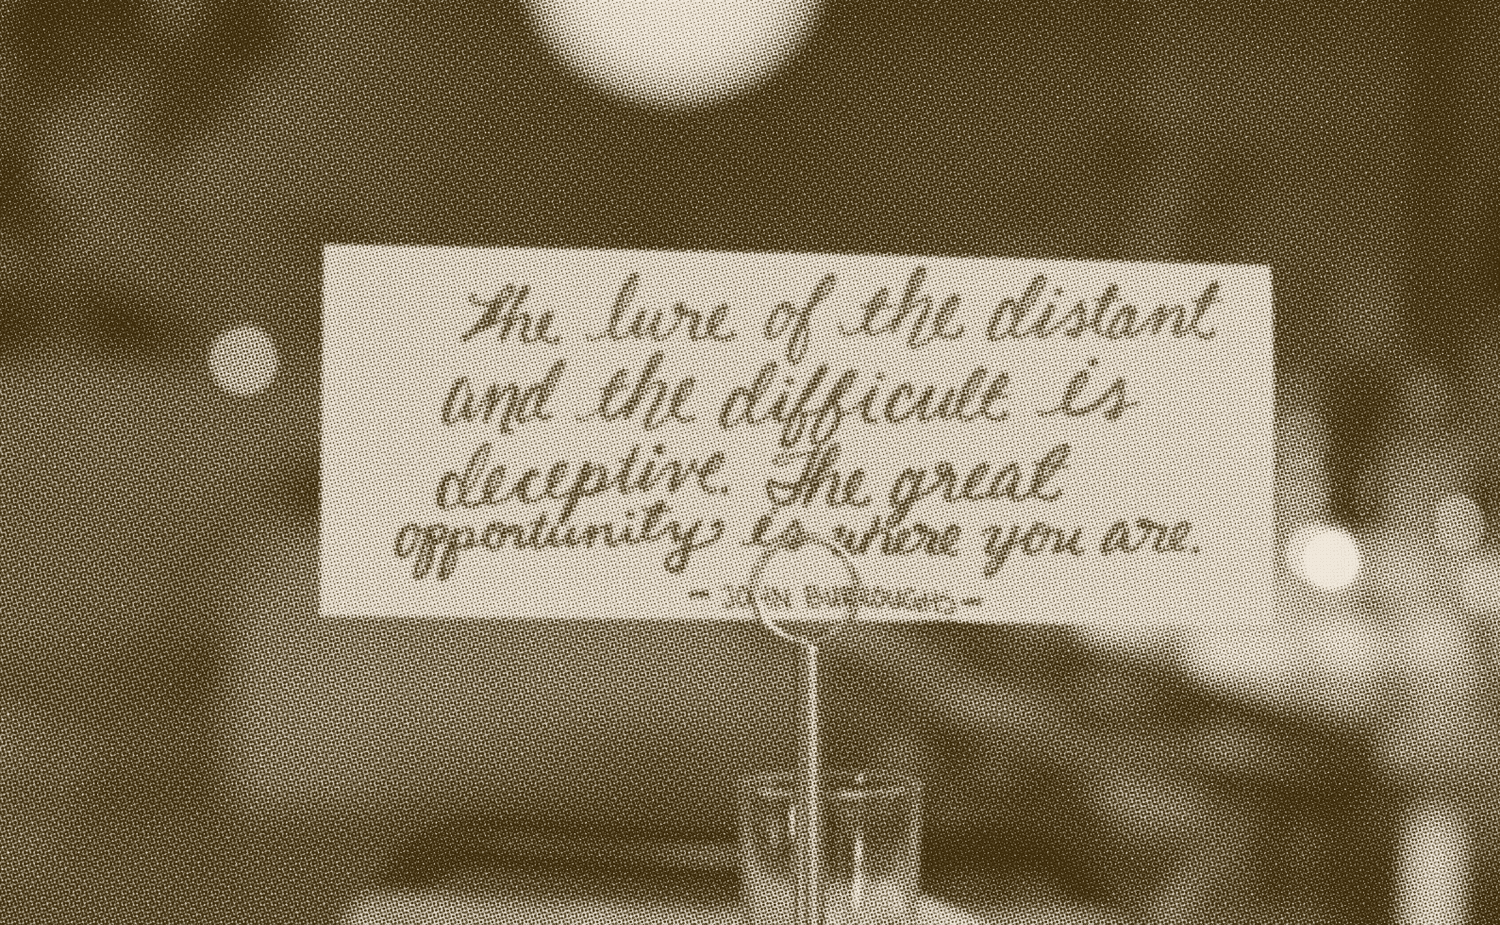 The lure of the distant
and the difficult is
deceptive. The great
opportunity is where you are.
- JOHN BURROUGHS -